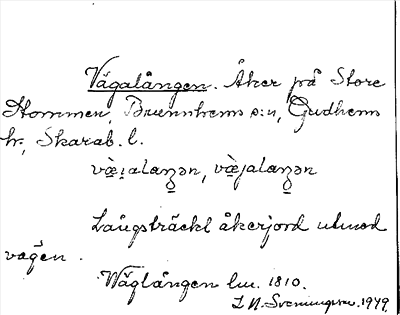 Vägalången. Åker på Store
Hommen, Brunnhems s:n, Gudhems
hr, Skarab. l.
væ̀ialaŋən, væ̀jalaŋən
Långsträckt åkerjord utmed
vägen.
Wäglången lm. 1810.
L M. Svenungsson. 1949.